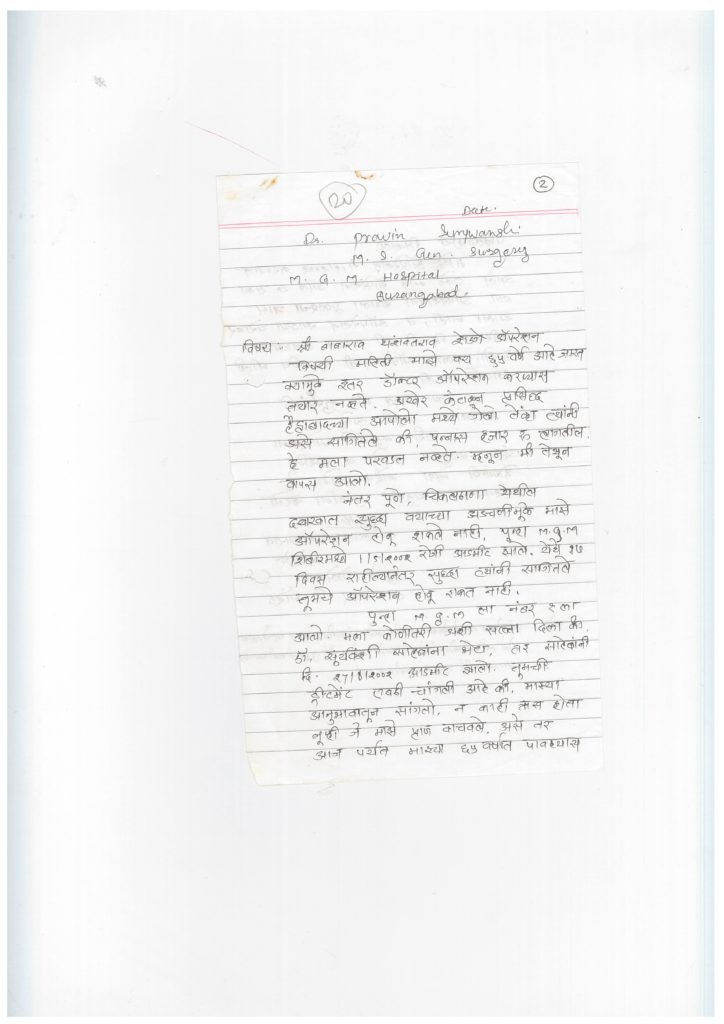 20
2
Date.
Dr. Pravin Surywanshi.
M. S. Gen. Surgery
M. G. M. Hospital
Aurangabad.
विषय :- श्री बाबाराव यशवंतराव शेळके ऑपरेशन
विषयी माहिती माझे वय ६५ वर्षे आहे जास्त
वयामुळे इतर डॉक्टर ऑपरेशन करण्यास
तयार नव्हते. अखेर कंटाळून प्रसिद्ध
हैद्राबादच्या आपोलो मध्ये गेलो तेंव्हा त्यांनी
असे सांगितले की, पन्नास हजार रु लागतील.
हे मला परवडत नव्हते. म्हणून मी तेथून
वापस आलो.
नंतर पूणे, चिकलठाणा येथील
दवाखाने सुद्धा वयाच्या अडचणीमुळे माझे
ऑपरेशन होवू शकले नाही, पुन्हा M.G.M
शिबीरमध्ये 1/5/२००२ रोजी अडमीट झालो. येथे १७
दिवस राहील्यानंतर सुध्दा त्यांनी सांगितले
तूमचे ऑपरेशन होवू शकत नाही.
पुन्हा M.G.M ला नंबर ८ ला
आलो. मला कोणीतरी अशी सल्ला दिला की,
डॉ. सूर्यवंशी साहेबांना भेटा, तर साहेबांनी
दि. २7/8/२००२ अडमीट झालो. तुमची
ट्रीटमेंट एवढी चांगली आहे की, माझ्या
अनुभावातून सांगतो, न काही त्रास होता
तूम्ही जे माझे प्राण वाचवले, असे तर
आज पर्यंत माझ्या ६५ वर्षात पावश्यास